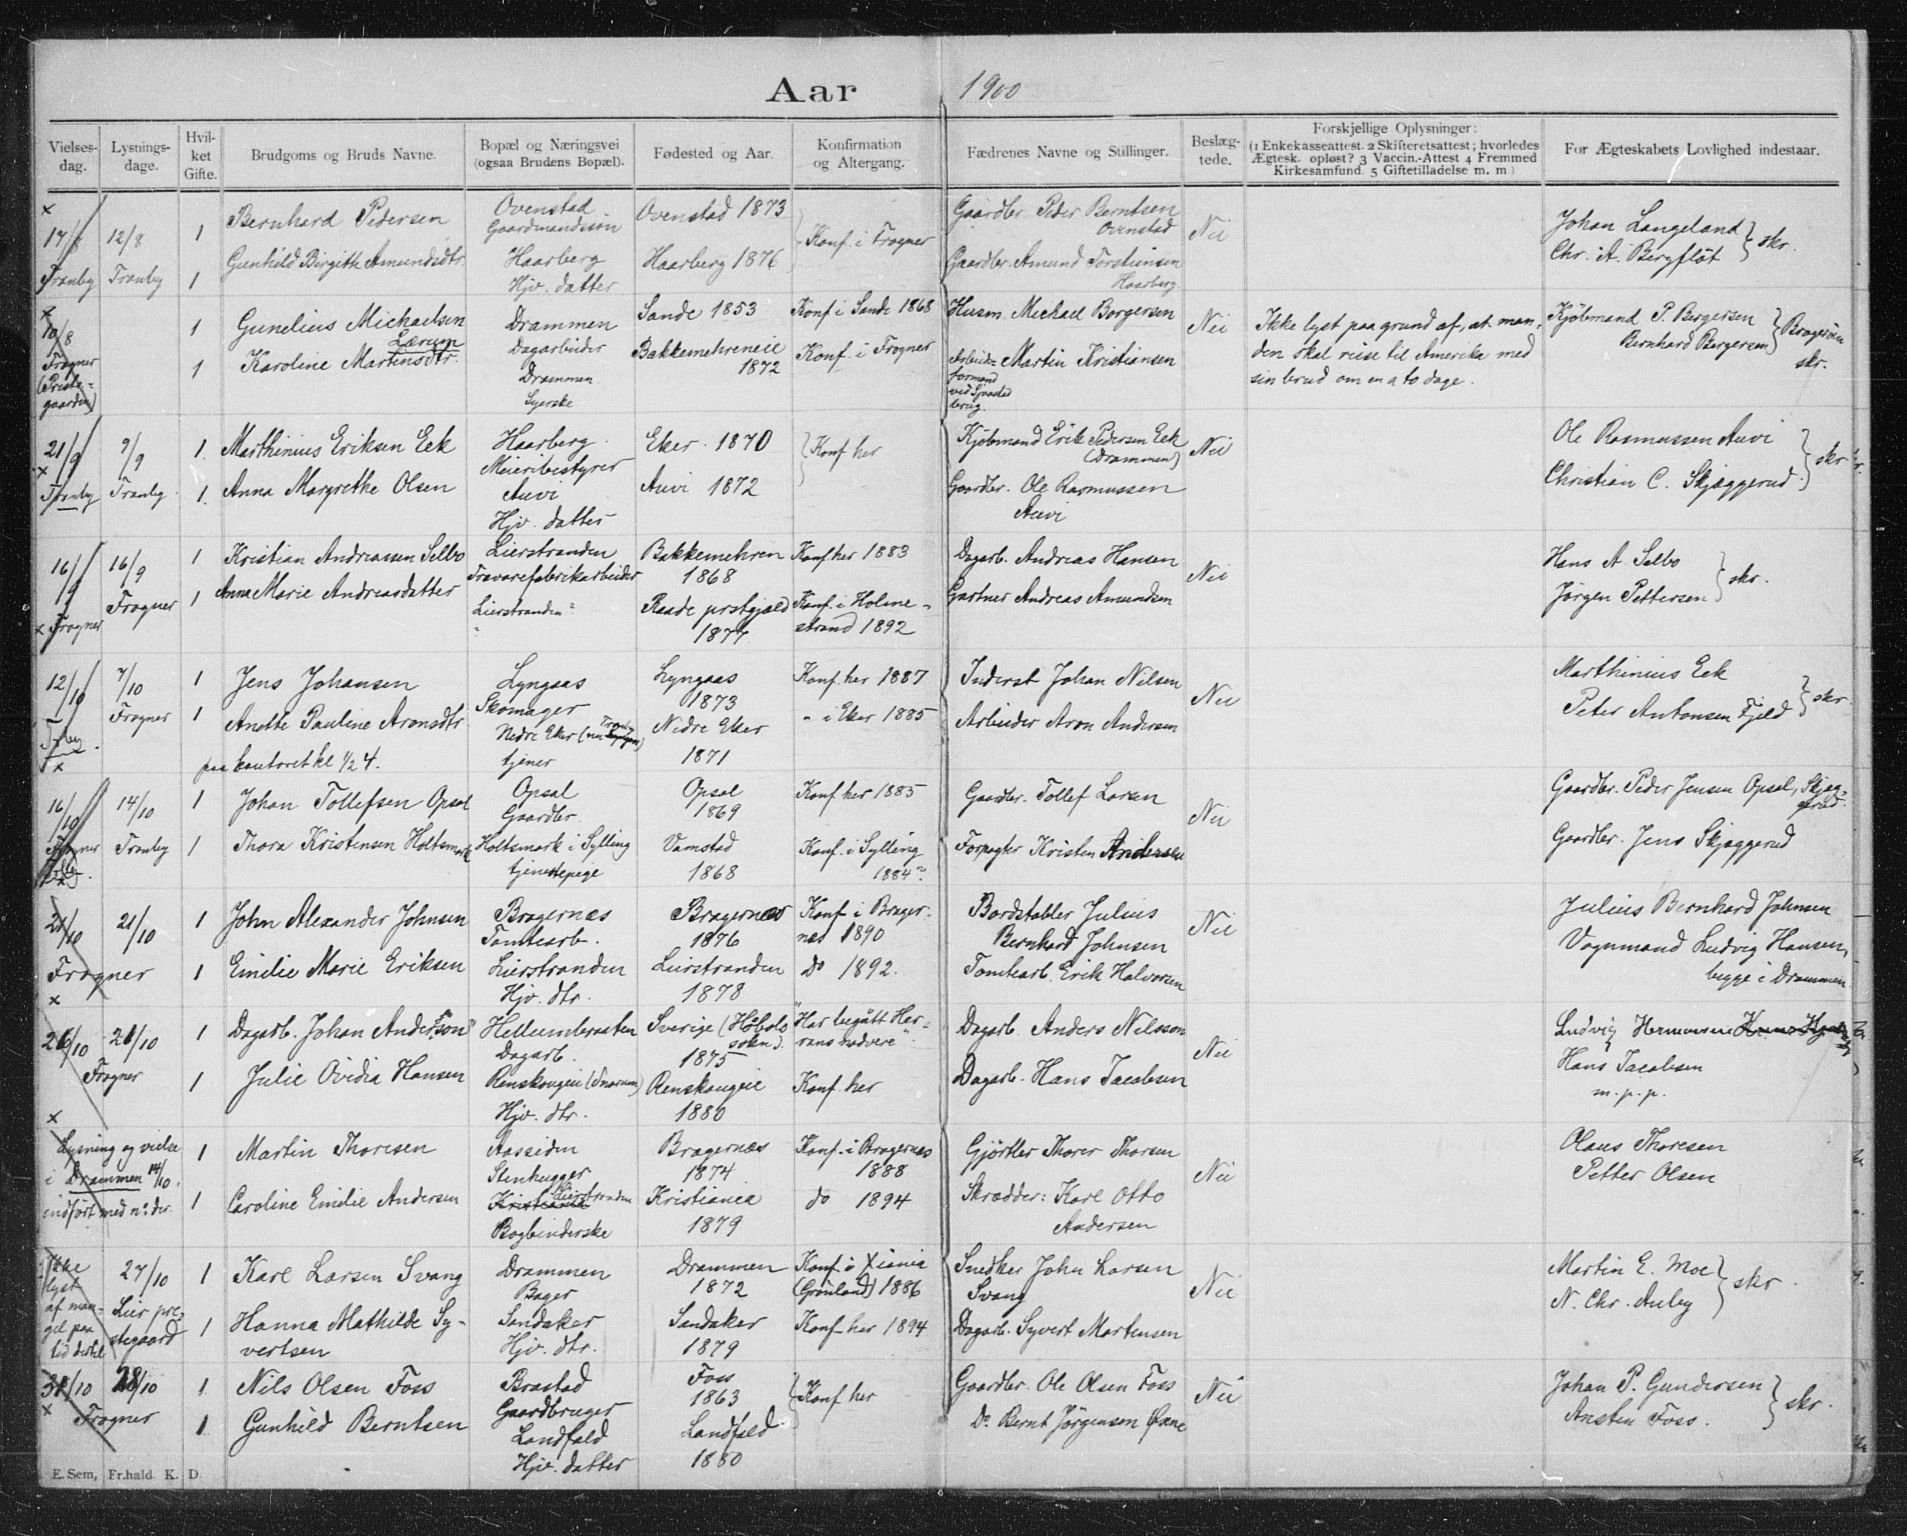 Aar 1900
Vielses-dag. Lysnings-dage. Hvil-ket Gifte. Brudgoms og Bruds Navne. Bopæl og Næringsvei (ogsaa Brudens Bopæl). Fødested og Aar. Konfirmation og Altergang. Fædrenes Navne og Stillinger. Beslæg-tede. Forskjellige Oplysninger: (1 Enkekasseattest. 2 Skifteretsattest; hvorledes Ægtesk. opløst? 3 Vaccin.-Attest 4 Fremmed Kirkesamfund 5 Giftetilladelse m. m) For Ægteskabets Lovlighed indestaar.
12/8 1 Bernhard Pedersen Ovenstad Ovenstad 1873 Gaardbr. Peder Berntsen Johan Langeland
Gaardmandssøn Konf. i Frogner Ovenstad Nei Chr. A. Bergfløt skr.
Tranby Tranby 1 Gunhild Birgitte Amundsdtr. Haarberg Haarberg 1876 Gaardbr. Amund Torstensen
Hjv. datter Haarberg
10/8 1 Gunelius Michaelsen Drammen Sande 1853 Konf i Sande 1868 Husm. Michael Borgersen Nei Ikke lyst paa grund af, at man- Kjøbmand P. Bergersen
Lærum Dagarbeider den skal reise til Amerika med Bernhard Bergersen Bragerøen
Frogner 1 Karoline Martinsdtr. Drammen Bakkemehreneie Konf. i Frogner Arbeids- Martin Kristiansen sin brud om en a to dage. skr.
(Preste- Syerske 1872 formand
gaarden) ved Gjuastad
brug.
21/9 9/9 1. Marthinius Eriksen Eek Haarberg Eker 1870 Konf her Kjøbmand Erik Pedersen Eek Nei Ole Rasmussen Auvi
Meieribestyrer (Drammen) skr
Tranby Tranby 1. Anna Margrethe Olsen Auvi Auvi 1872 Gaardbr. Ole Rasmussen Christian C. Skjæggerud
Hjv. datter Auvi
16/9 16/9 1 Kristian Andreassen Selbo Lierstranden Bakkemehren Konf her 1883 Dagarb. Andreas Hansen Nei Hans A Selbo
Travarefabrikarbeider 1868 skr.
Frogner Frogner 1 Anna Marie Andreasdatter Lierstranden Raade prstgjæld Konf. i Holme- Gartner Andreas Amundsen Jørgen Pettersen
1877 strand 1892
12/10 7/10 1 Jens Johansen Lyngaas Lyngaas Konf. her 1887 Inderst Johan Nilsen Nei Marthinius Eek
Skomager 1873 skr.
Frogner 1 Anette Pauline Aronsdtr Nedre Eker Nedre Eker " i Eker 1885 Arbeider Aron Andersen Peter Antonsen Fjeld
paa kontoret kl 1/2 4. tjener 1871
16/10 14/10 1 Johan Tollefsen Opsal Opsal Opsal Konf her 1885 Gaardbr. Tollef Larsen Nei Gaardbr. Peder Jensen Opsal, Skjæg-
Gaardbr. 1869 gerud
Tranby 1 Thora Kristensen Holtsmark Holtsmark i Sylling Vamstad Konf. i Sylling Forpagter Kristen Andersen Gaardbr. Jens Skjæggerud
tjenestepige 1868 1884?
21/10 21/10 1 John Alexander Johnsen Bragernæs Bragernæs Konf i Brager- Bordstabler Julius Nei Julius Bernhard Johnsen
Tomtearb. 1876 næs 1890 Bernhard Johnsen Vognmand Ludvig Hansen,
Frogner 1 Emilie Marie Eriksen Lierstranden Lierstranden Do 1892. Tomtearb. Erik Halvorsen begge i Drammen
Hjv. dtr. 1878
26/10 21/10 1 Dagarb. Johan Andersson Hellumbraaten Sverige (Höbols "Har begått Her- Dagarb. Anders Nilsson Nei Ludvig Hermansen
Dagarb. sokn) 1875 rans nadvere".
Frogner 1 Julie Ovidia Hansen Renskougeie (Snarum) Renskougeie Konf her Dagarb. Hans Jacobsen Hans Jacobsen
Hjv. dtr. 1880 m. p. p.
Lysning og vielse 1 Martin Thoresen Aassiden Bragernæs Konf. i Bragernæs Gjørtler Thorer Thorsen Nei Olaus Thoresen
i Drammen 14/10. Stenhugger 1874 1888 Petter Olsen
indført med n: der. 1 Caroline Emilie Andersen Kristiania Lierstranden Kristiania do 1894 Skrædder: Karl Otto
Bogbinderske 1879 Andersen
Ikke 27/10 1 Karl Larsen Svang Drammen Drammen Konf. i Xiania Snedker John Larsen Nei Martin E. Moe
lyst Bager 1872 (Grønland) 1886 Svang skr.
af man- Lier pre- 1 Hanna Mathilde Sy- Sandaker Sandaker Konf- her 1894 Dagarb. Syvert Martensen N. Chr. Auby
gel paa stegaard vertsen Hjv. dtr. 1879
tid dertil
31/10 28/10 1 Nils Olsen Foss Brastad Foss Konf her Gaardbr. Ole Olsen Foss Nei Johan P. Gundersen
Gaardbruger 1863 skr.
Frogner 1 Gunhild Berntsen Landfald Landfald Do Bernt Jørgensen Øane Ansten Foss.
Hjv. datter 1880
E. Sem, Fr.hald. K. D.